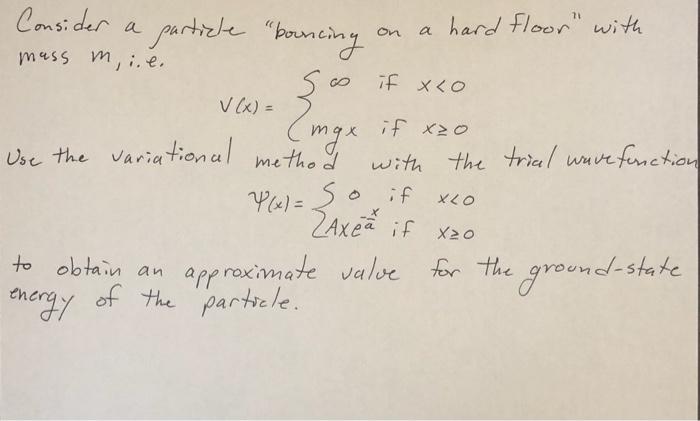 Consider a particle "bouncing on a hard floor" with
mass m, i.e.
V(x) = { ∞ if x<0
mgx if x≥0
Use the variational method with the trial wavefunction
Ψ(x) = { 0 if x<0
Axe^{-x/a} if x≥0
to obtain an approximate value for the ground-state
energy of the particle.